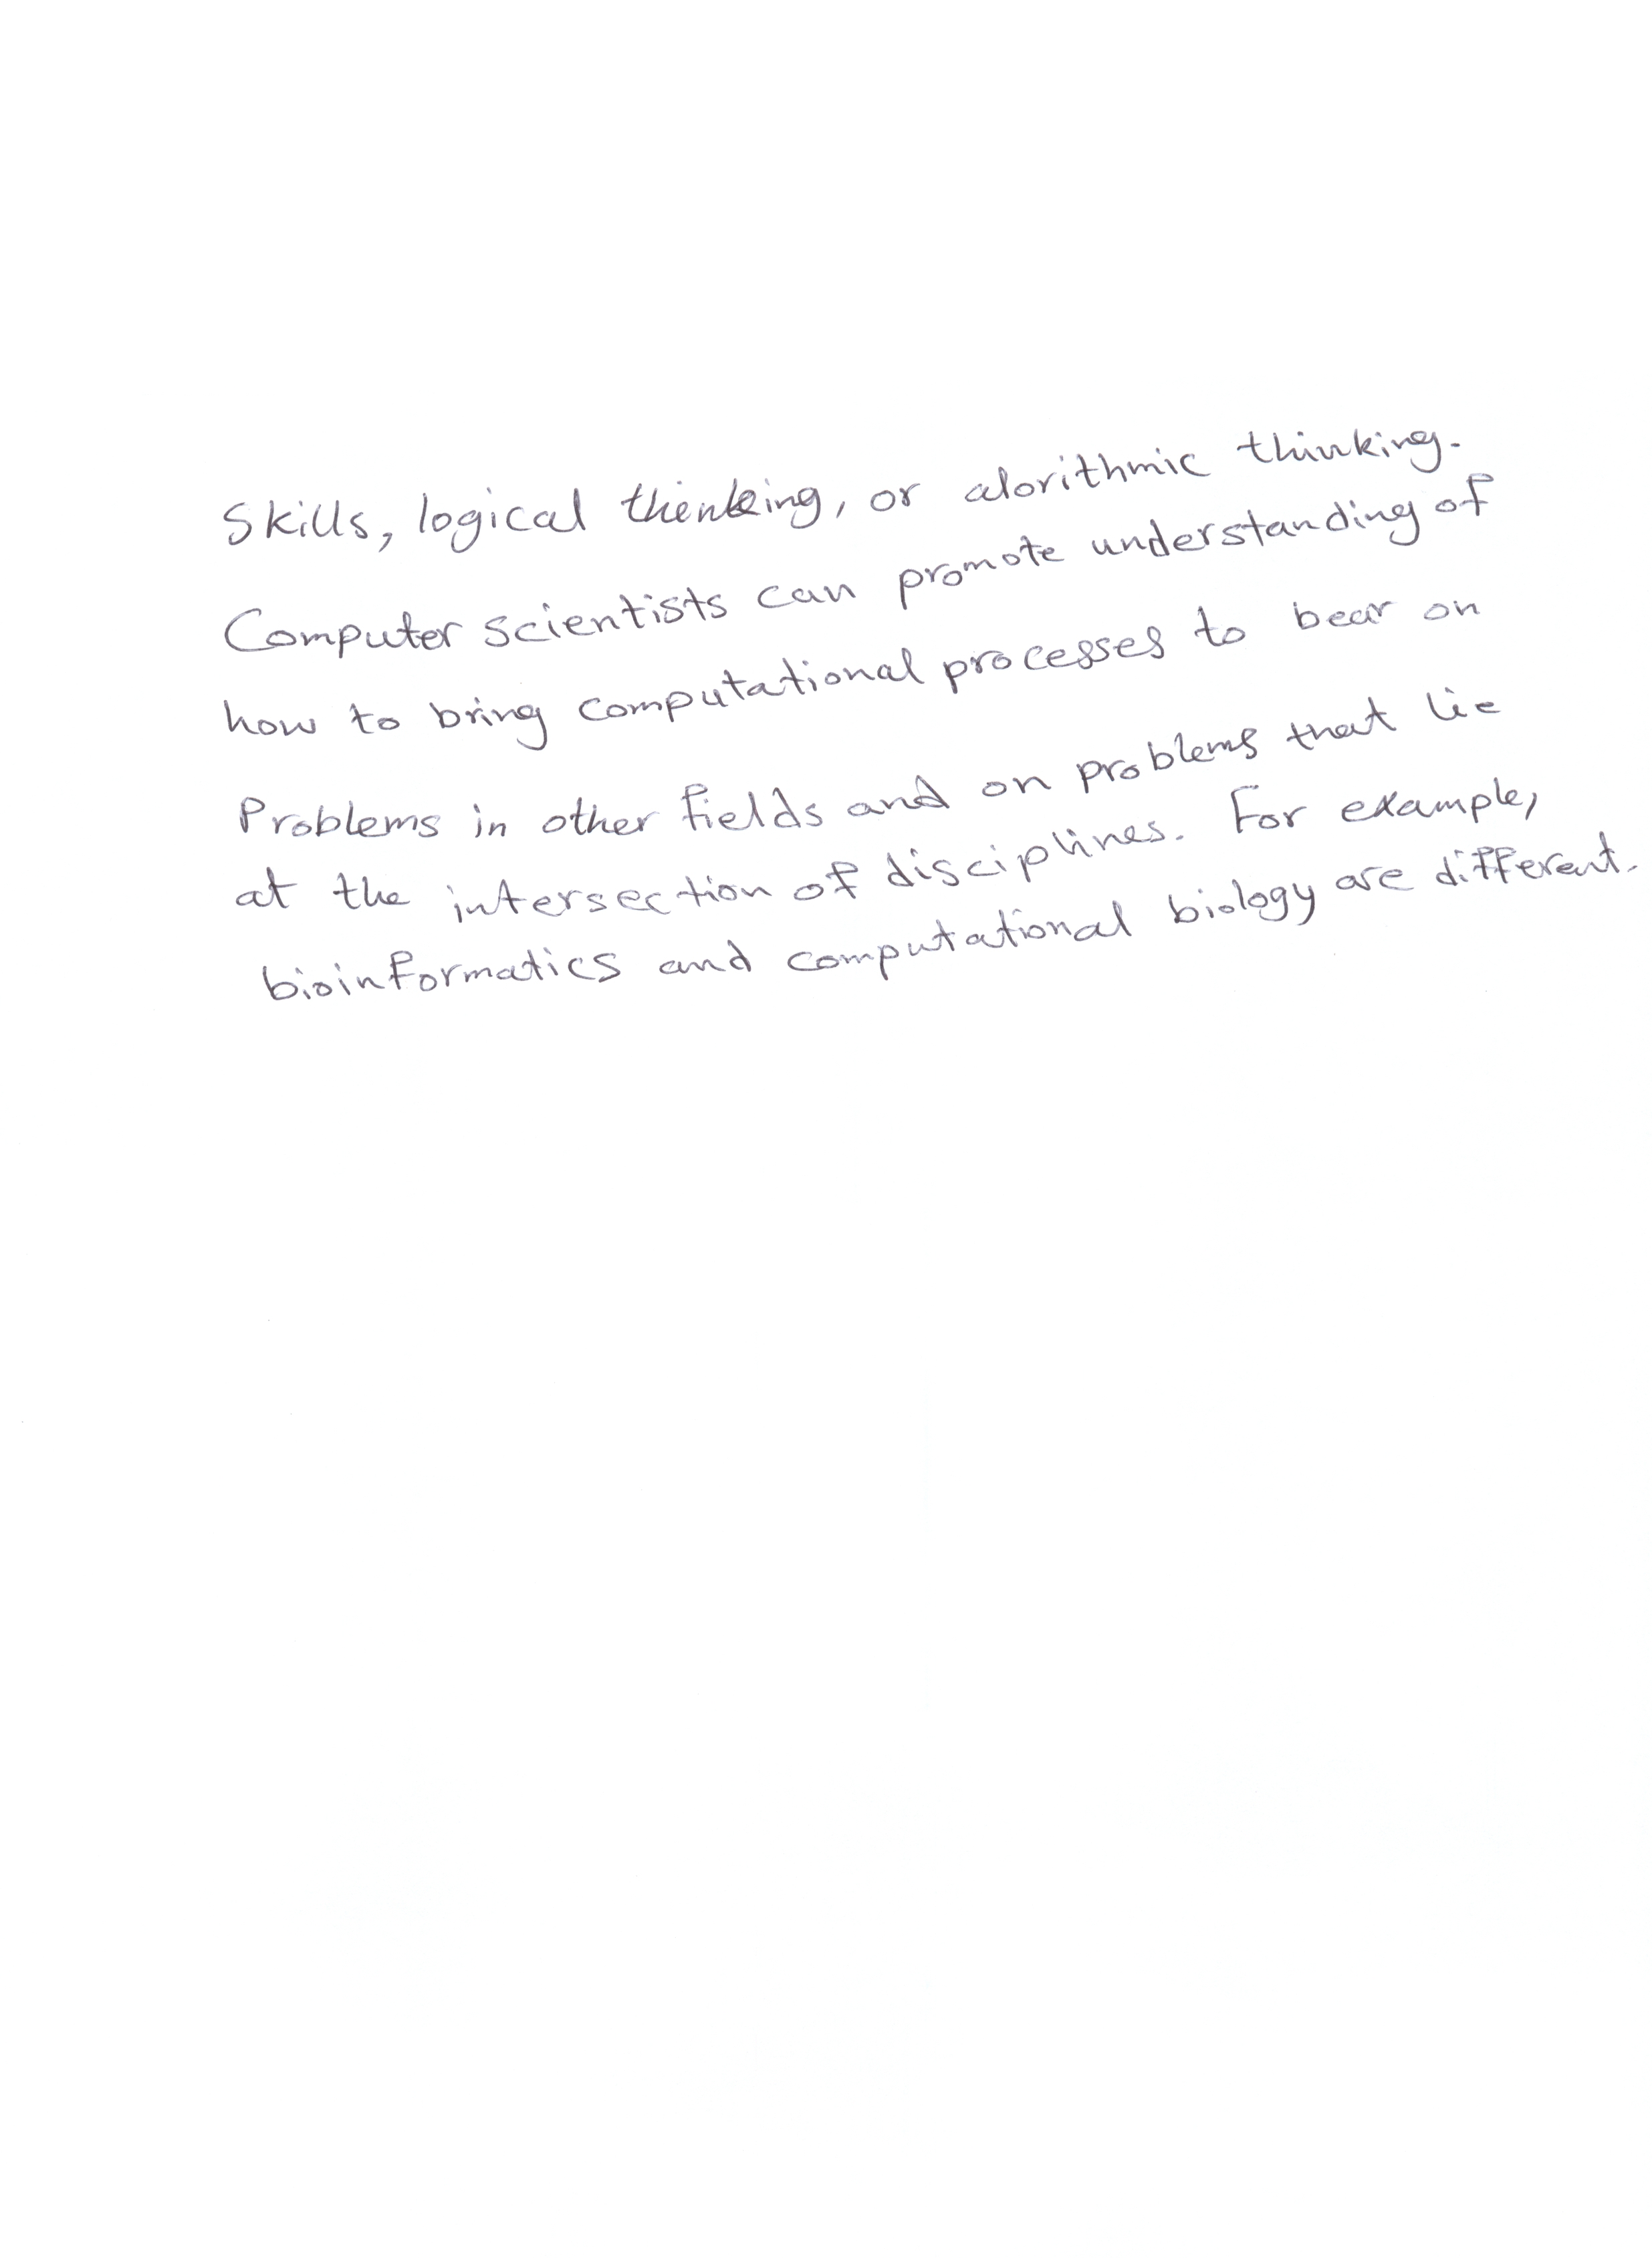 Skills, logical thinking, or alorithmic thinking.
Computer scientists can promote understanding of
how to bring computational processes to bear on
Problems in other fields and on problems that lie
at the intersection of disciplines. For example,
bioinformatics and computational biology are different.